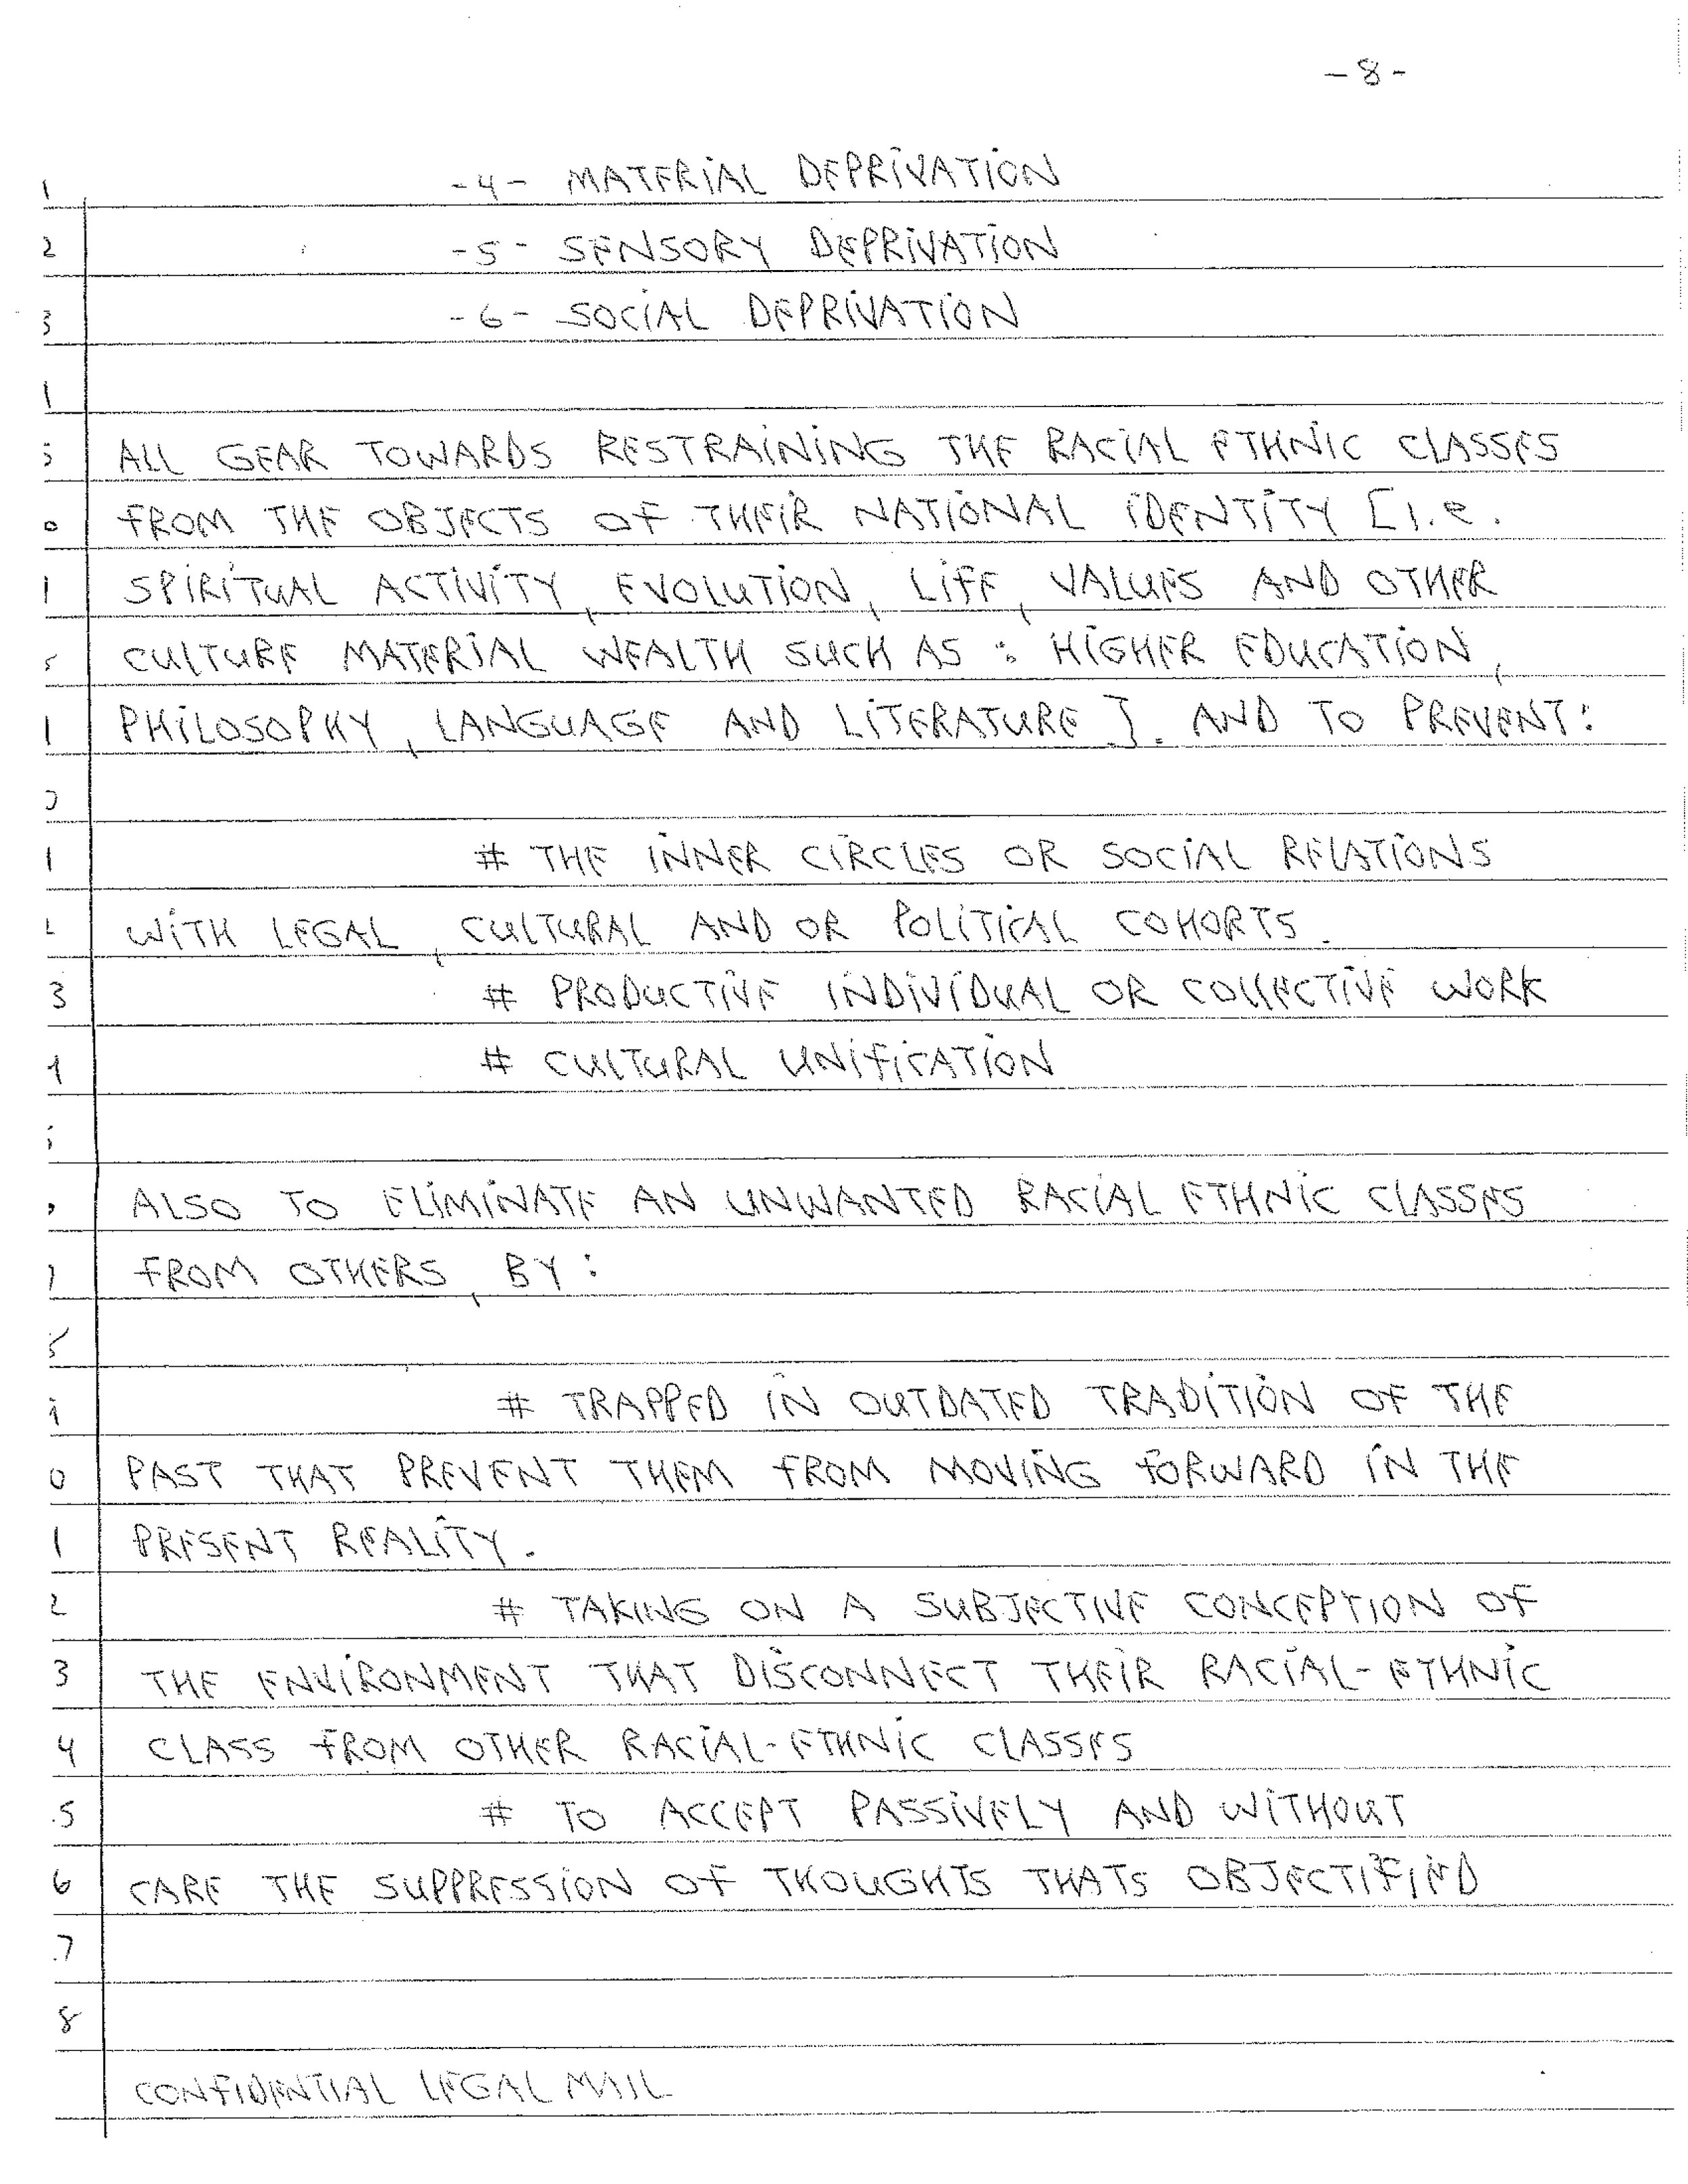 -8-
1 -4- MATERIAL DEPRIVATION
2 -5- SENSORY DEPRIVATION
3 -6- SOCIAL DEPRIVATION
ALL GEAR TOWARDS RESTRAINING THE RACIAL ETHNIC CLASSES
FROM THE OBJECTS OF THEIR NATIONAL IDENTITY [i.e.
SPIRITUAL ACTIVITY, EVOLUTION, LIFE, VALUES AND OTHER
CULTURE MATERIAL WEALTH SUCH AS : HIGHER EDUCATION,
PHILOSOPHY, LANGUAGE AND LITERATURE]. AND TO PREVENT:
# THE INNER CIRCLES OR SOCIAL RELATIONS
WITH LEGAL, CULTURAL AND OR POLITICAL COHORTS.
3 # PRODUCTIVE INDIVIDUAL OR COLLECTIVE WORK
# CULTURAL UNIFICATION
ALSO TO ELIMINATE AN UNWANTED RACIAL ETHNIC CLASSES
FROM OTHERS, BY:
# TRAPPED IN OUTDATED TRADITION OF THE
0 PAST THAT PREVENT THEM FROM MOVING FORWARD IN THE
1 PRESENT REALITY.
2 # TAKING ON A SUBJECTIVE CONCEPTION OF
3 THE ENVIRONMENT THAT DISCONNECT THEIR RACIAL-ETHNIC
4 CLASS FROM OTHER RACIAL-ETHNIC CLASSES
5 # TO ACCEPT PASSIVELY AND WITHOUT
6 CARE THE SUPPRESSION OF THOUGHTS THATS OBJECTIFIED
7
8
CONFIDENTIAL LEGAL MAIL